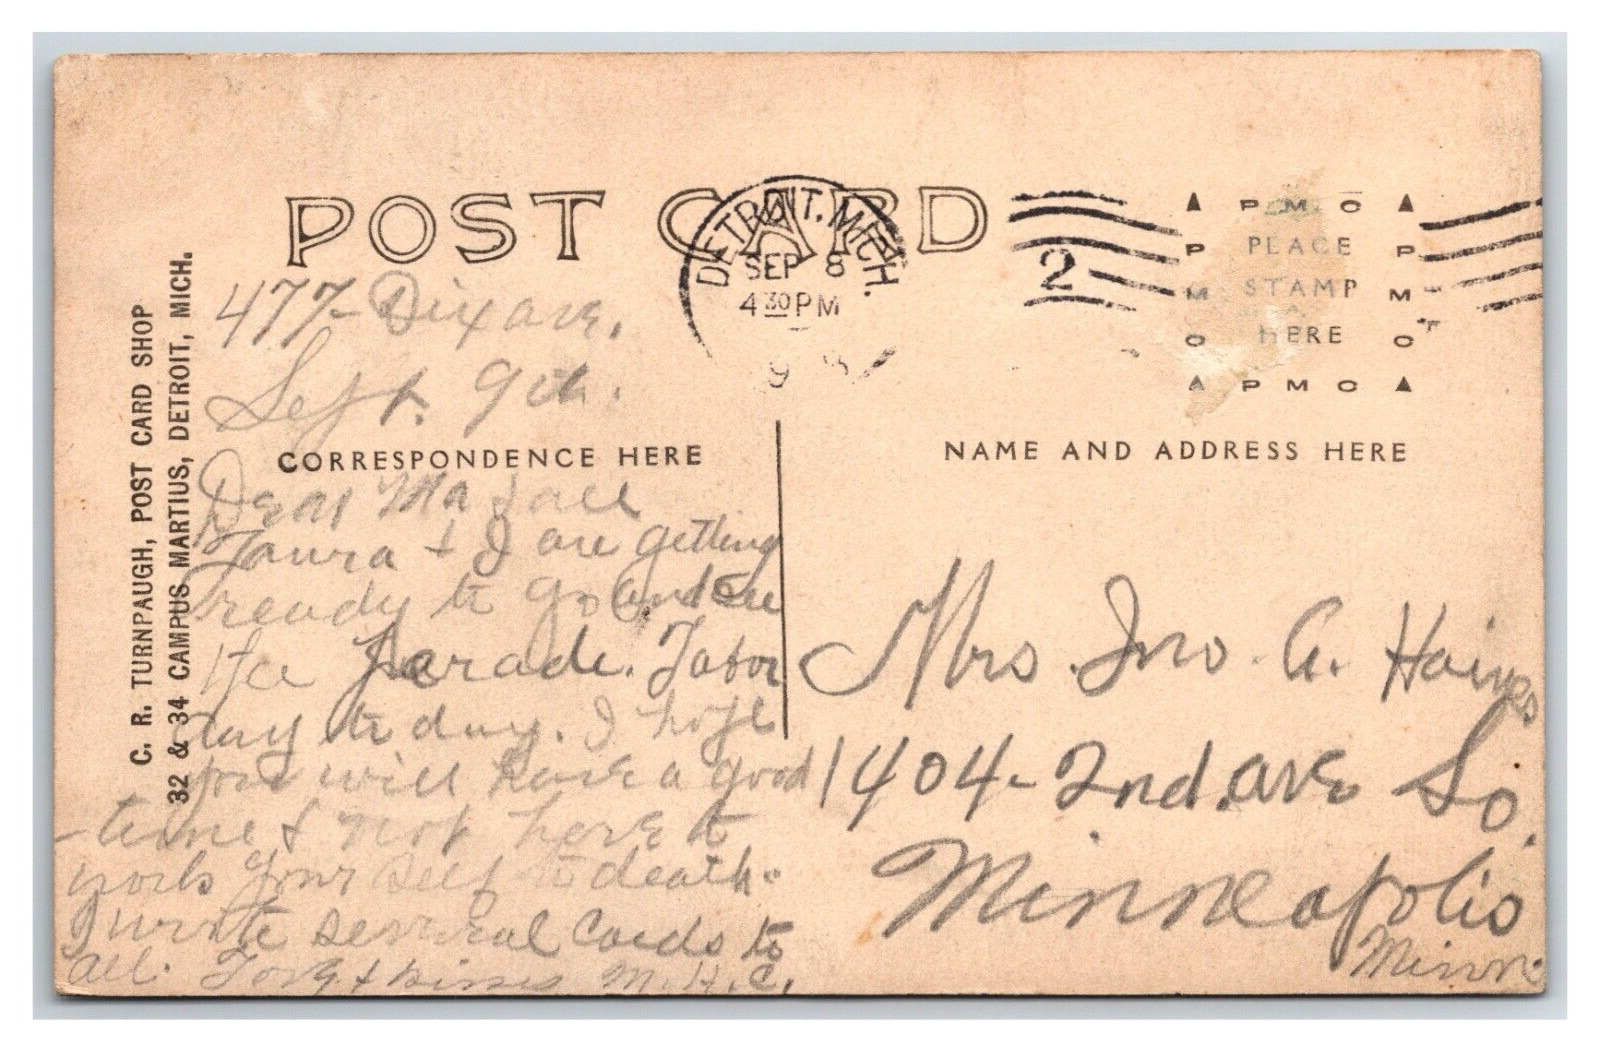 POST CARD
DETROIT, MICH.
SEP 8
4 30 PM
2
P M C
PLACE
STAMP
HERE
P M C
C. R. TURNPAUGH, POST CARD SHOP
32 & 34 CAMPUS MARTIUS, DETROIT, MICH.
477- Dix ave.
Sept. 9th.
CORRESPONDENCE HERE
NAME AND ADDRESS HERE
Dear Ma & all
Laura + I are getting
ready to go and see
the parade. Labor
day to day. I hope
you will have a good
time & not have to
work your self to death.
I wrote several cards to
all. Love + kisses M. H. C.
Mrs. Jno. A. Haines
1404- 2nd. ave So.
Minneapolis
Minn.